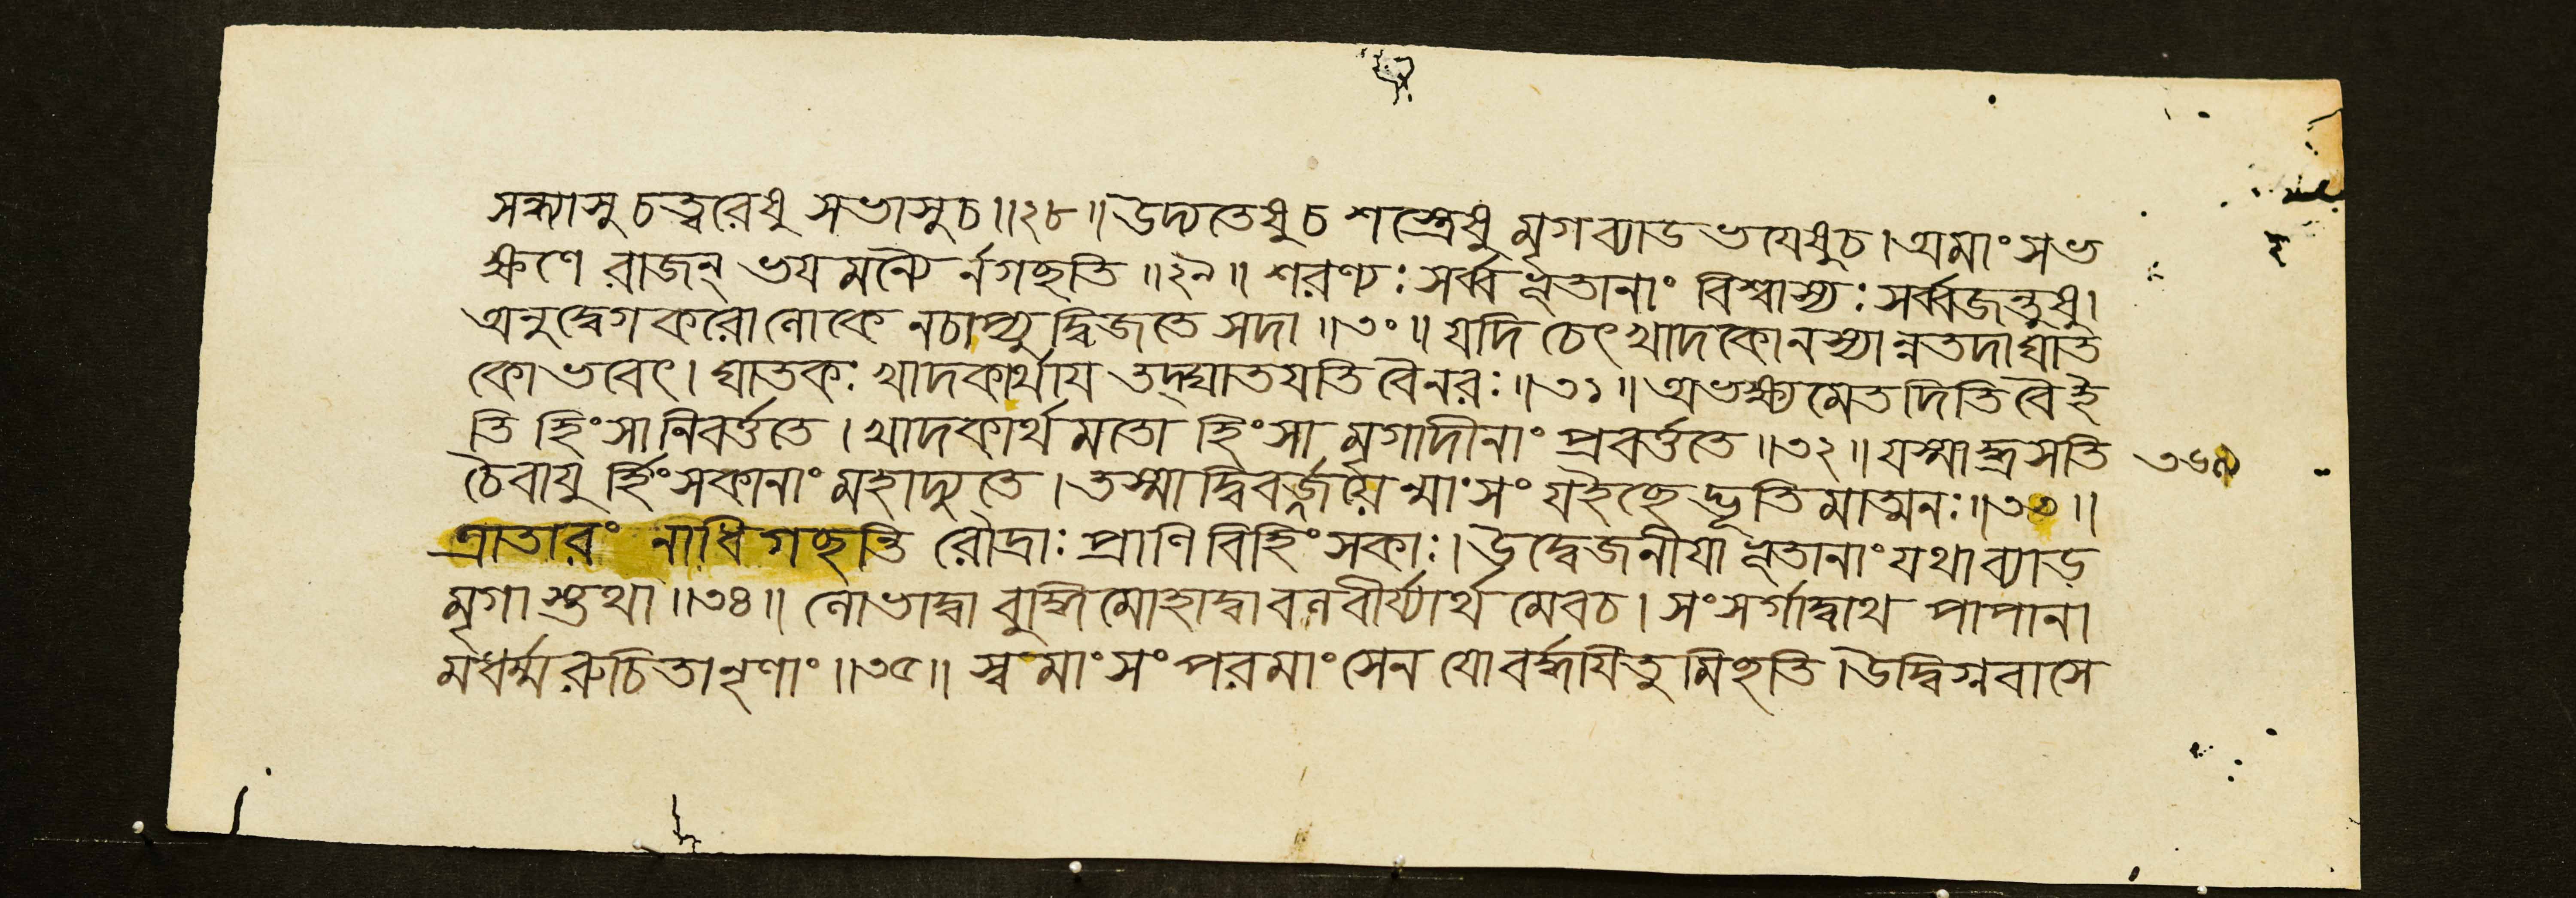 সন্ধ্যাসু চত্বরেষু সভাসু চ॥২৮॥ উদ্যতেষু চ শস্ত্রেষু মৃগব্যাড ভযেষু চ। অমাংসভ
ক্ষণে রাজন্ ভয মন্যৈ র্নগচ্ছতি॥২৯॥ শরণ্যঃ সর্ব্ব ভূতানাং বিশ্বাস্যঃ সর্ব্বজন্তুষু।
অনুদ্বেগ করো লোকে ন চাপ্যু দ্বিজতে সদা॥৩০॥ যদি চেৎ খাদকো নস্যা ন্ন তদা ঘাত
কো ভবেৎ। ঘাতকঃ খাদকার্থায তদ্ঘাতযতি বৈ নরঃ॥৩১॥ অভক্ষ্য মেতদিতি বৈ ই
তি হিংসা নিবর্ত্ততে। খাদকার্থ মতো হিংসা মৃগাদীনাং প্রবর্ত্ততে॥৩২॥ যস্মাদ্গ্রসতি
চৈবাযু র্হিংসকানাং মহাদ্যুতে। তস্মাদ্বিবর্জ্জযে ন্মাংসং য ইচ্ছে দ্ভূতি মাত্মনঃ॥৩৩॥
ত্রাতারং নাধিগচ্ছন্তি রৌদ্রাঃ প্রাণি বিহিংসকাঃ। উদ্বেজনীযা ভূতানাং যথা ব্যাড়
মৃগা স্তথা॥৩৪॥ লোভাদ্বা বুদ্ধি মোহাদ্বা বল বীর্য্যার্থ মেব চ। সংসর্গাদ্বাথ পাপানা
মধর্ম্ম রুচিতা নৃণাং॥৩৫॥ স্ব মাংসং পরমাংসেন যো বর্দ্ধযিতু মিচ্ছতি। উদ্বিগ্নবাসে